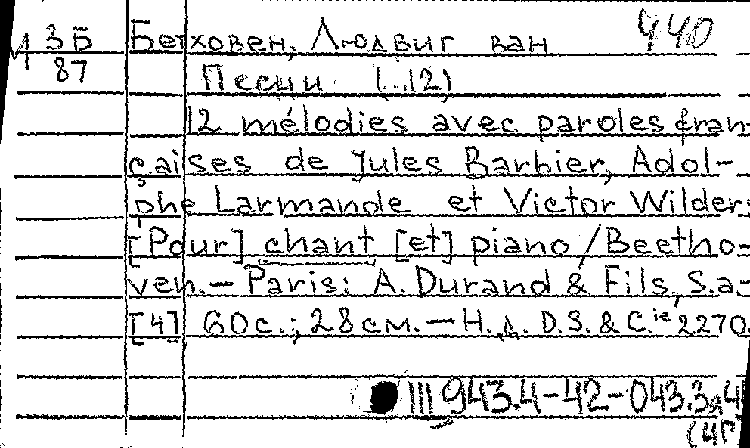 И 3Б Бетховен, Людвиг ван 440
87 Песни (..12)
12 mélodies avec paroles fran-
çaises de Jules Barbier, Adol-
phe Larmande et Victor Wilder:
[Pour] chant [et] piano / Beetho-
ven. — Paris: A. Durand & Fils, S.a.-
[4] 60с.; 28см. — Н.д. D.S. & C.ie 2270.
III 943.4-42-043.3я4
(4Г